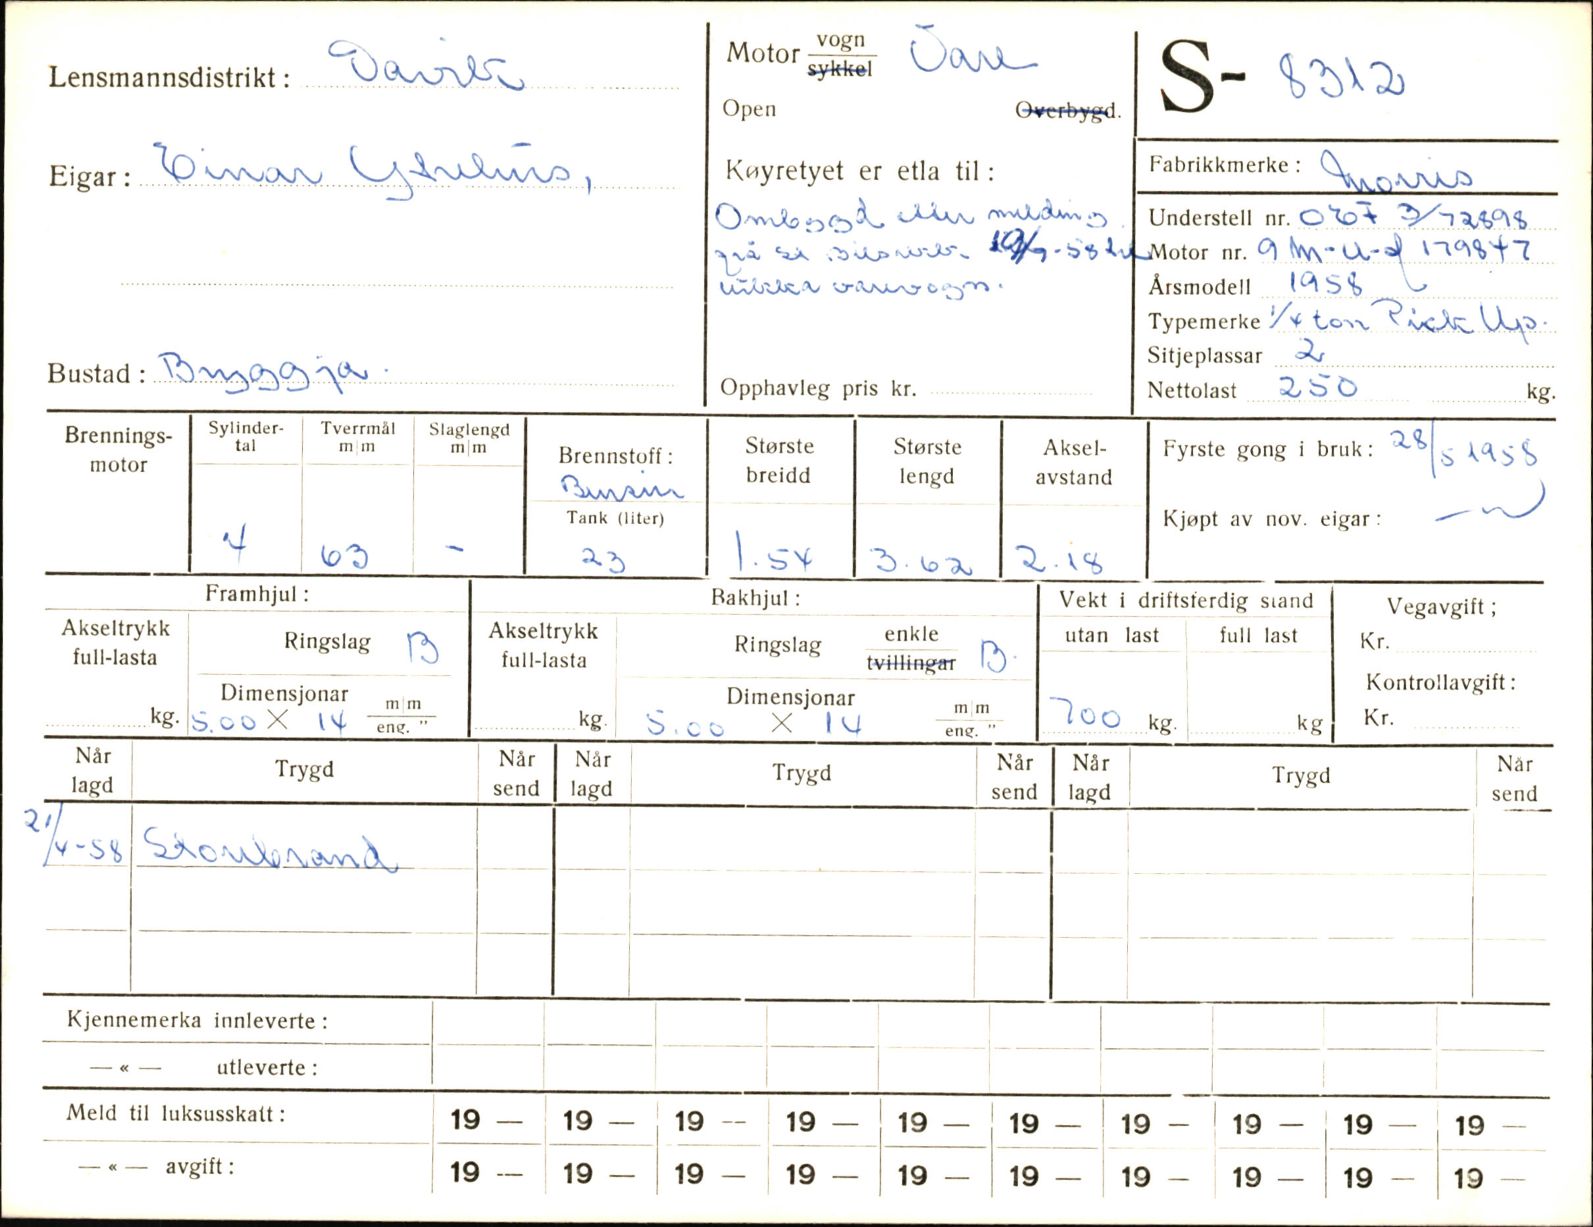 Lensmannsdistrikt: Davik
Eigar: Einar
Bustad: Bryggja.
Motor vogn Vare
sykkel
Open Overbygd.
Køyretyet er etla til:
Ombygd etter melding
frå st. bilsakk. 19/9-58 til
lukka varevogn.
Opphavleg pris kr.
S- 8312
Fabrikkmerke: Morris
Understell nr. OEF 3/72898
Motor nr. 9M-U-H 179847
Årsmodell 1958
Typemerke 1/4 ton Pick Up.
Sitjeplassar 2
Nettolast 250 kg.
Brennings-
motor
Sylinder-
tal
4
Tverrmål
m|m
63
Slaglengd
m|m
-
Brennstoff:
Bensin
Tank (liter)
23
Største
breidd
1.54
Største
lengd
3.62
Aksel-
avstand
2.18
Fyrste gong i bruk: 28/5 1958
Kjøpt av nov. eigar: —"—
Framhjul:
Akseltrykk
full-lasta
kg.
Ringslag B
Dimensjonar m|m
5.00 X 14 eng."
Bakhjul:
Akseltrykk
full-lasta
kg.
Ringslag enkle B.
tvillingar
Dimensjonar m|m
5.00 X 14 eng."
Vekt i driftsferdig stand
utan last full last
700 kg. kg
Vegavgift;
Kr.
Kontrollavgift:
Kr.
Når
lagd
Trygd
Når
send
Når
lagd
Trygd
Når
send
Når
lagd
Trygd
Når
send
21/4-58 Storebrand
Kjennemerka innleverte:
— « — utleverte:
Meld til luksusskatt: 19 — 19 — 19 — 19 — 19 — 19 — 19 — 19 — 19 — 19 —
— « — avgift: 19 — 19 — 19 — 19 — 19 — 19 — 19 — 19 — 19 — 19 —